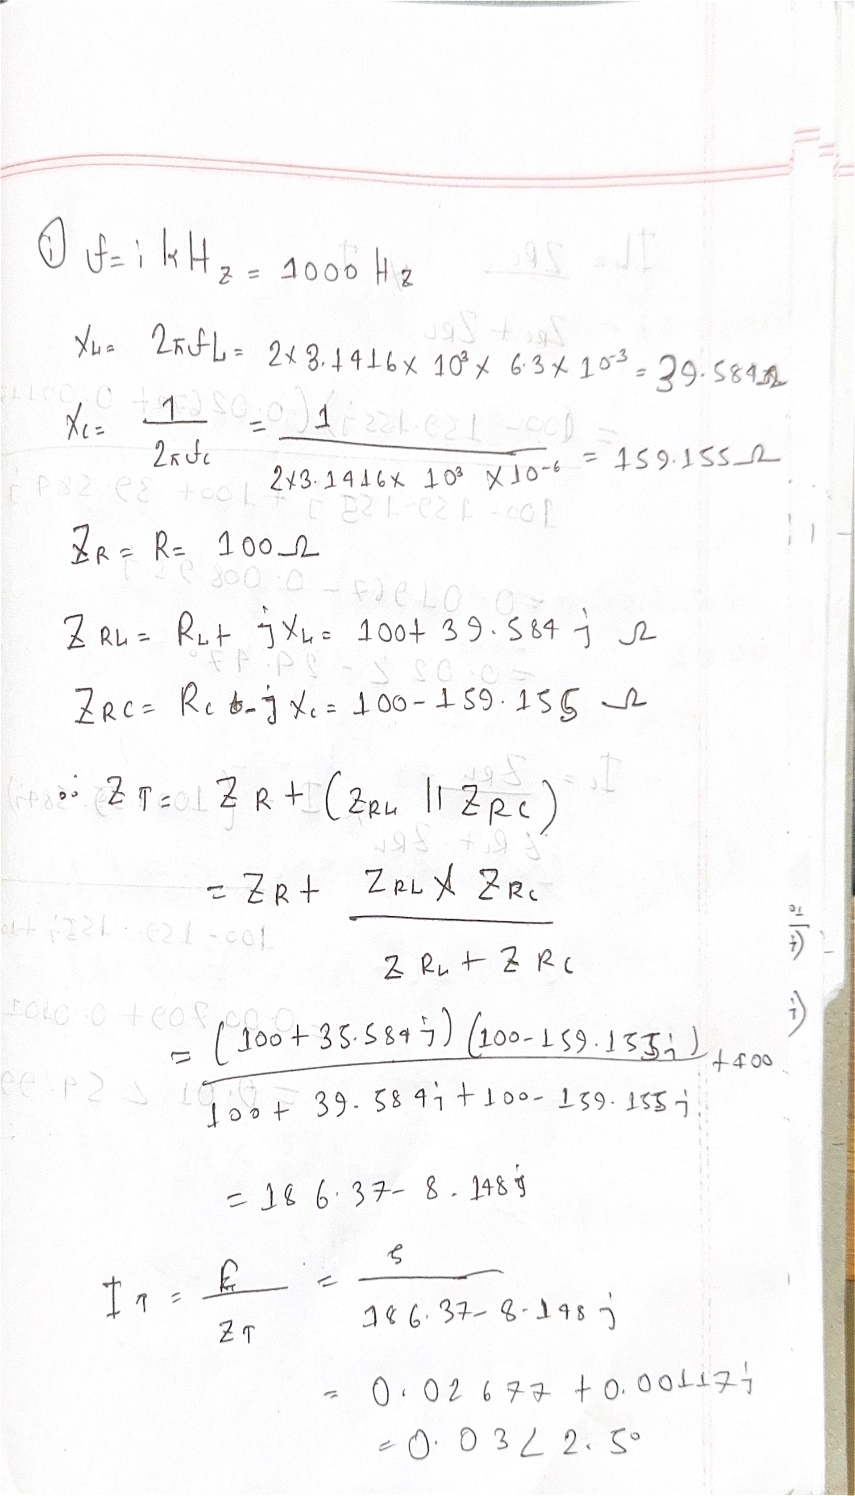 ① f = 1 kHz = 1000 Hz
XL = 2πfL = 2×3.1416× 10³ × 6.3 × 10⁻³ = 39.584Ω
Xc = 1/2πfc = 1/2×3.1416× 10³ ×10⁻⁶ = 159.155Ω
ZR = R = 100Ω
ZRL = RL + jXL = 100+ 39.584 j Ω
ZRC = Rc - j Xc = 100-159.155 Ω
∴ ZT = ZR + (ZRL || ZRC)
= ZR + ZRL × ZRC / ZRL + ZRC
= (100+35.584j) (100-159.155j) / 100+ 39.584j +100- 159.155j +100
= 186.37- 8.148j
IT = E/ZT = 5/186.37-8.148 j
= 0.02677 +0.00117j
= 0.03∠2.5°